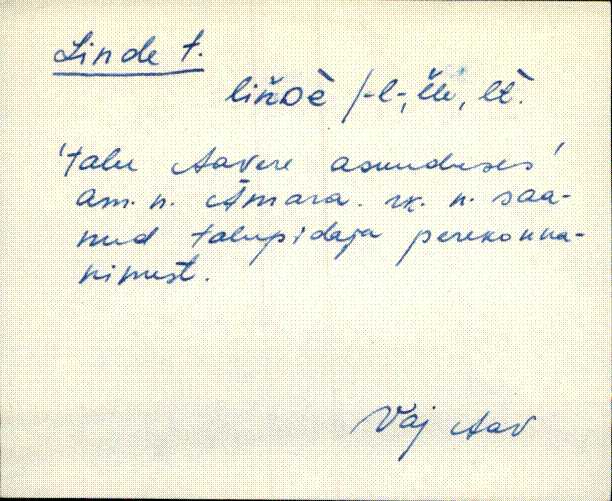 Linde t.
liňᴅè /-l-, èle, lè̀.
'talu Aavere asunduses'
am. n. Āmara. rk. n. saa-
nud talupidaja perekonna-
nimest.
Vaj Aav